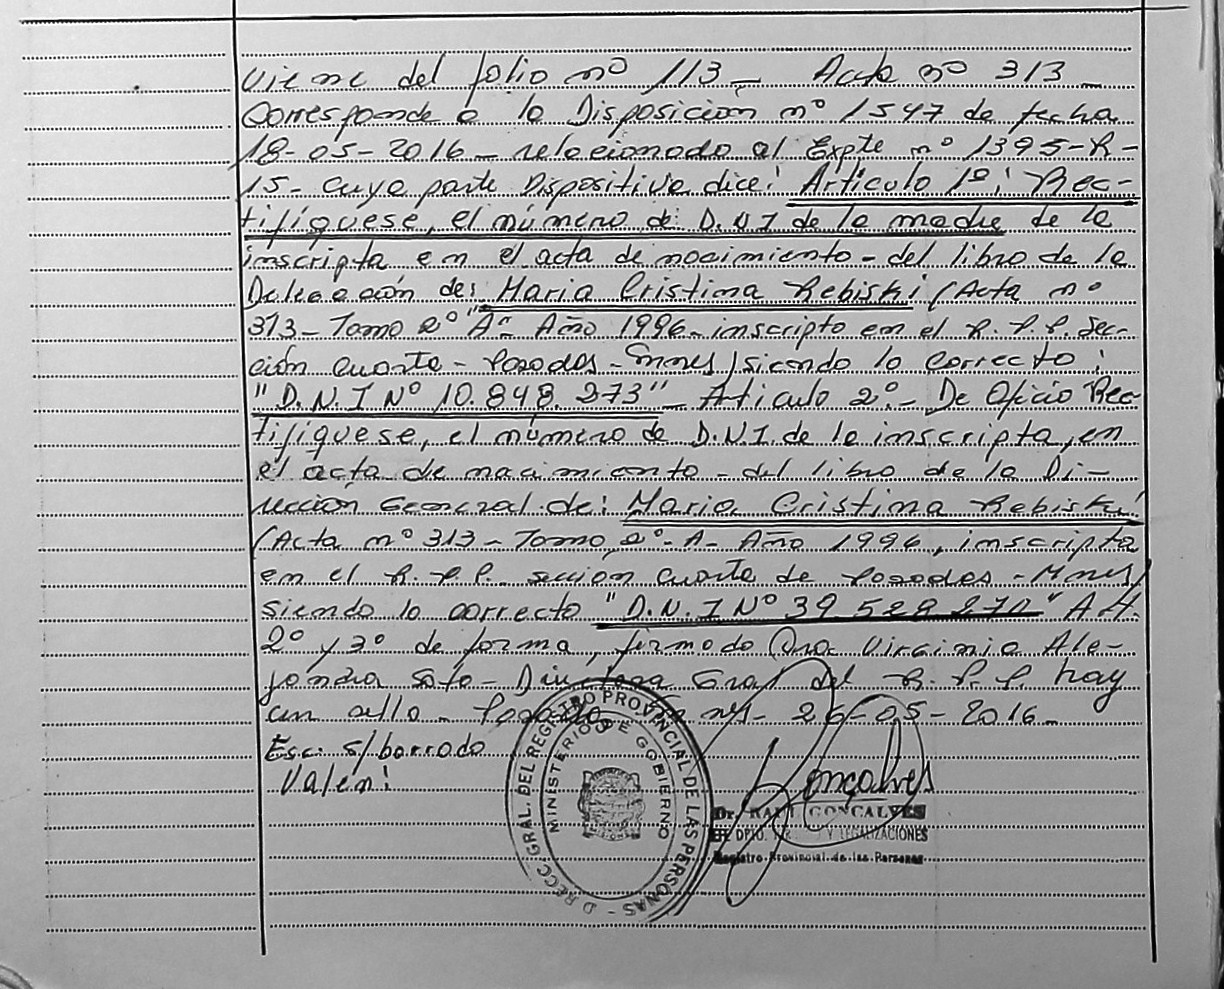 Viene del folio nº 113 - Acta nº 313 -
Corresponde a la Disposición nº 1547 de fecha
18-05-2016 - relacionado al Expte nº 1395-R-
15- cuya parte Dispositiva dice: Artículo 1º: Rec-
tifíquese, el número de D.N.I de la madre de la
inscripta en el acta de nacimiento - del libro de la
Delegación de: Maria Cristina Rebiski (Acta nº
313 - Tomo 2º "A" - Año 1996 - inscripto en el R.P.P. Sec-
ción cuarta - Posadas - Mnes) siendo lo correcto:
"D.N.I Nº 10.848.273" - Aticulo 2º - De Oficio Rec-
tifíquese, el número de D.N.I. de la inscripta, en
el acta de nacimiento - del libro de la Di-
rección General de: Maria Cristina Rebiski
(Acta nº 313 - Tomo 2º - A - Año 1996, inscripta
en el R.P.P. sección cuarta de Posadas - Mnes)
siendo lo correcto "D.N.I Nº 39 528 270" Art.
2º y 3º de forma, firmado Dra. Virginia Ale-
jandra Soto - Directora Gral del R.P.P. hay
un sello - Posadas Mnes - 26-05-2016 -
Esc: s/borrado
Valen:
DIRECC. GRAL. DEL REGISTRO PROVINCIAL DE LAS PERSONAS -
MINISTERIO DE GOBIERNO
Goncalves
Dr. GONCALVES
DPTO. Y LEGALIZACIONES
Registro Provincial de las Personas